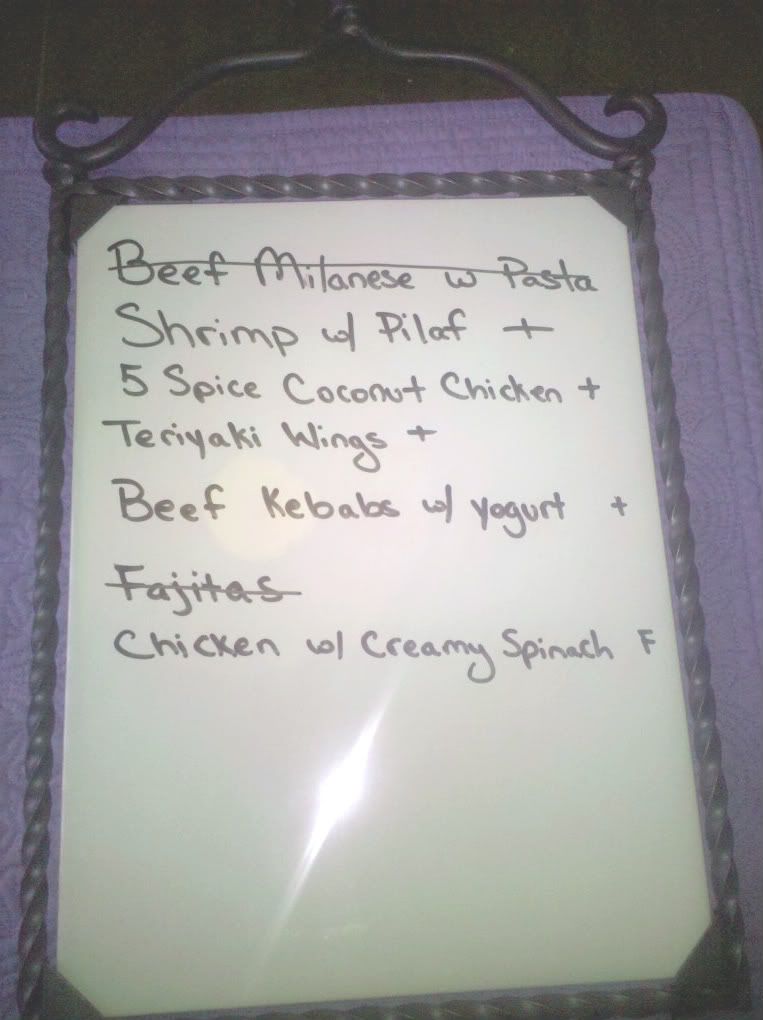 Beef Milanese w Pasta
Shrimp w/ Pilaf +
5 Spice Coconut Chicken +
Teriyaki Wings +
Beef Kebabs w/ yogurt +
Fajitas
Chicken w/ Creamy Spinach F